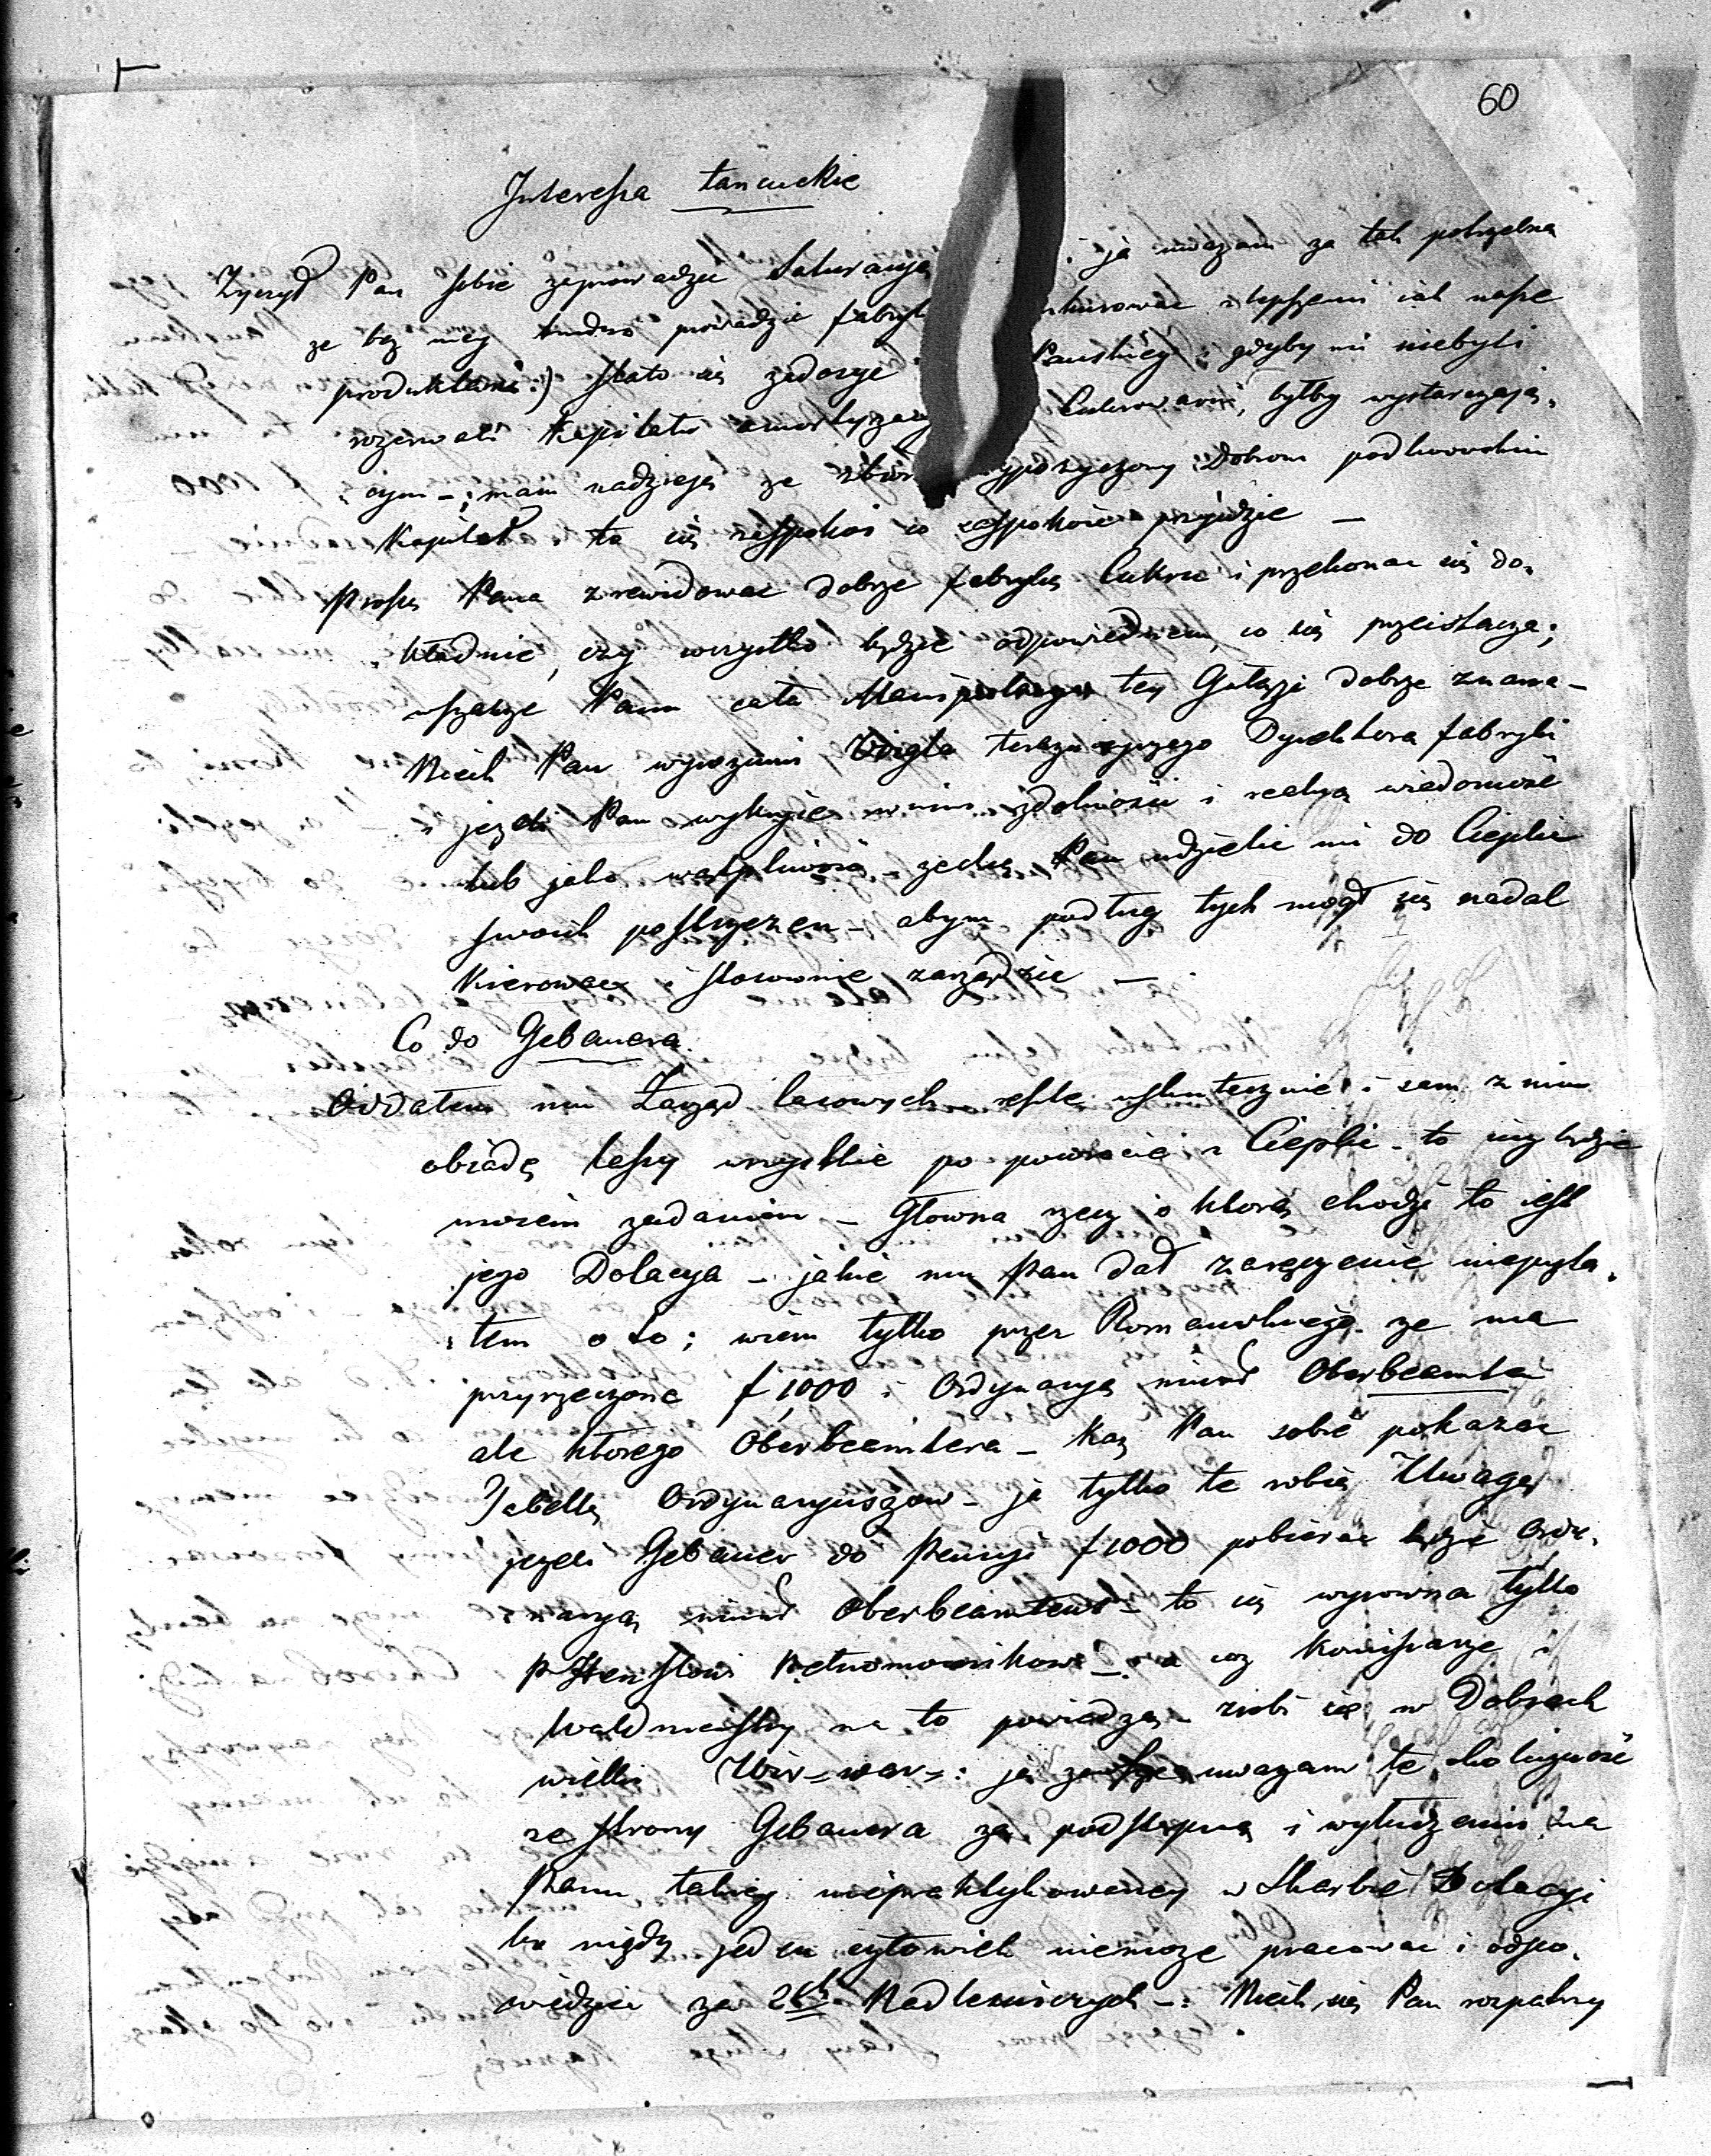 60
Interessa Łancuckie
Zyczył Pan sobie zaprowadzic Saturacyą i ja uwazam za tak potrzebną
ze bez niey trudno prowadzic fabryk z lepszemi iak nasze
produktami:) stało się zadosyc Panskiey i gdyby mi niebyli
rozerwali Kapitału Cukrowarni, byłby wystarczają,
„cym – ; mam nadzieję ze wypozyczony Dobrom podlwowskim
Kapitał, to się zaspokoi co zaspokoic przyidzie –
Proszę Pana zrewidowac dobrze fabrykę Cukru i przekonac się do,
„kładnie, czy wszystko będzie odpowiedniem, co się przeistacza;
wszakze Panu cała Manipulacya tey Gałęzi dobrze znana –
Niech Pan wyrozumi Voigta teraznieyszego Dyrektora fabryki
i jezeli Pan wykryie w nim zdolności i realną wiadomość
lub jaką wątpliwość – zechce Pan udzielic mi do Cieplic
swoich postrzezen – abym podług tych mogł się nadal
Kierowac i stosownie zarządzic –
Co do Gebauera
Oddałem mu Zarząd lasowych uskutecznie i sam z nim
obiadę lassy wszystkie po powrocie z Cieplic – to iuz będzie
mojem zadaniem – Głowna rzecz o ktorą chodzi to iest
jego Dotacya – jakie mu Pan dał zaręczenie niepyta,
„łem o to ; wiem tylko przez Romanskiego ze ma
przyrzeczone f 1,000 i Ordynaryą niund Oberbeamtera
ale ktorego Oberbeamtera – Kaz Pan sobie pokazac
Tabellę Ordynaryuszow – ja tylko tę robię Uwagę
jezeli Gebauer do Pensyi f 1000 pobierac będzie Ordy,
naryą niund Oberbeamterow – to się wyrowna tylko
P. Pełnomocnikowi – a coz Komisarze i
Waldmeistry na to powiedzą – zrobi się w Dobrach
wielki Wir-war – : ja zawsze uwazam tę okolicznosc
ze strony Gebauera za podstępną i wyłudzenie na
Panu, takiey niepraktykowaney w Skarbie Dotacyi
bo nigdy jeden człowiek niemoze pracowac i odpo,
wiedziec za 2ch Nadlesniczych – : Niech się Pan rozpatrzy